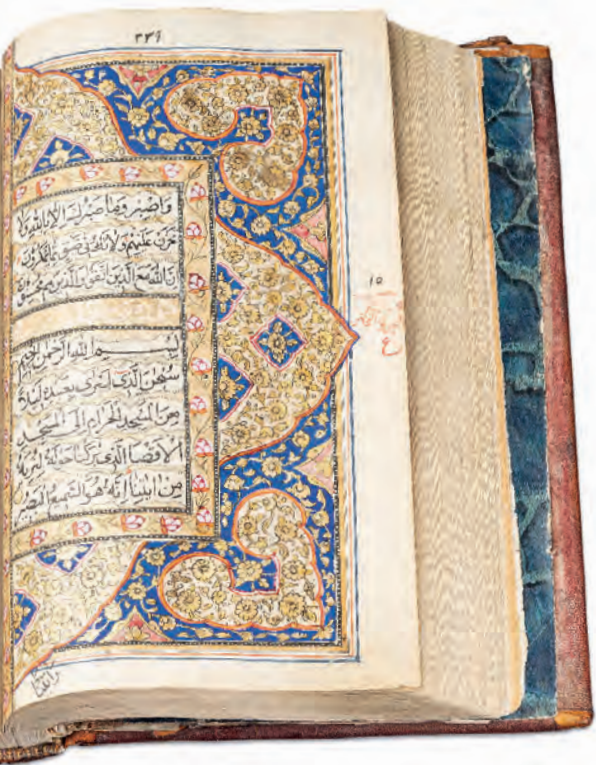 ٣٣٩
وَاصْبِرْ وَمَا صَبْرُكَ اِلَّا بِاللّٰهِ وَلَا
تَحْزَنْ عَلَيْهِمْ وَلَا تَكُ فِي ضَيْقٍ مِمَّا يَمْكُرُونَ
اِنَّ اللّٰهَ مَعَ الَّذِينَ اتَّقَوْا وَالَّذِينَ هُمْ مُحْسِنُونَ
بِسْمِ اللّٰهِ الرَّحْمٰنِ الرَّحِيمِ
سُبْحٰنَ الَّذِي اَسْرٰى بِعَبْدِهِ لَيْلًا
مِنَ الْمَسْجِدِ الْحَرَامِ اِلَى الْمَسْجِدِ
الْاَقْصَا الَّذِي بٰرَكْنَا حَوْلَهُ لِنُرِيَهُ
مِنْ اٰيٰتِنَا اِنَّهُ هُوَ السَّمِيعُ الْبَصِيرُ
١٥
ع